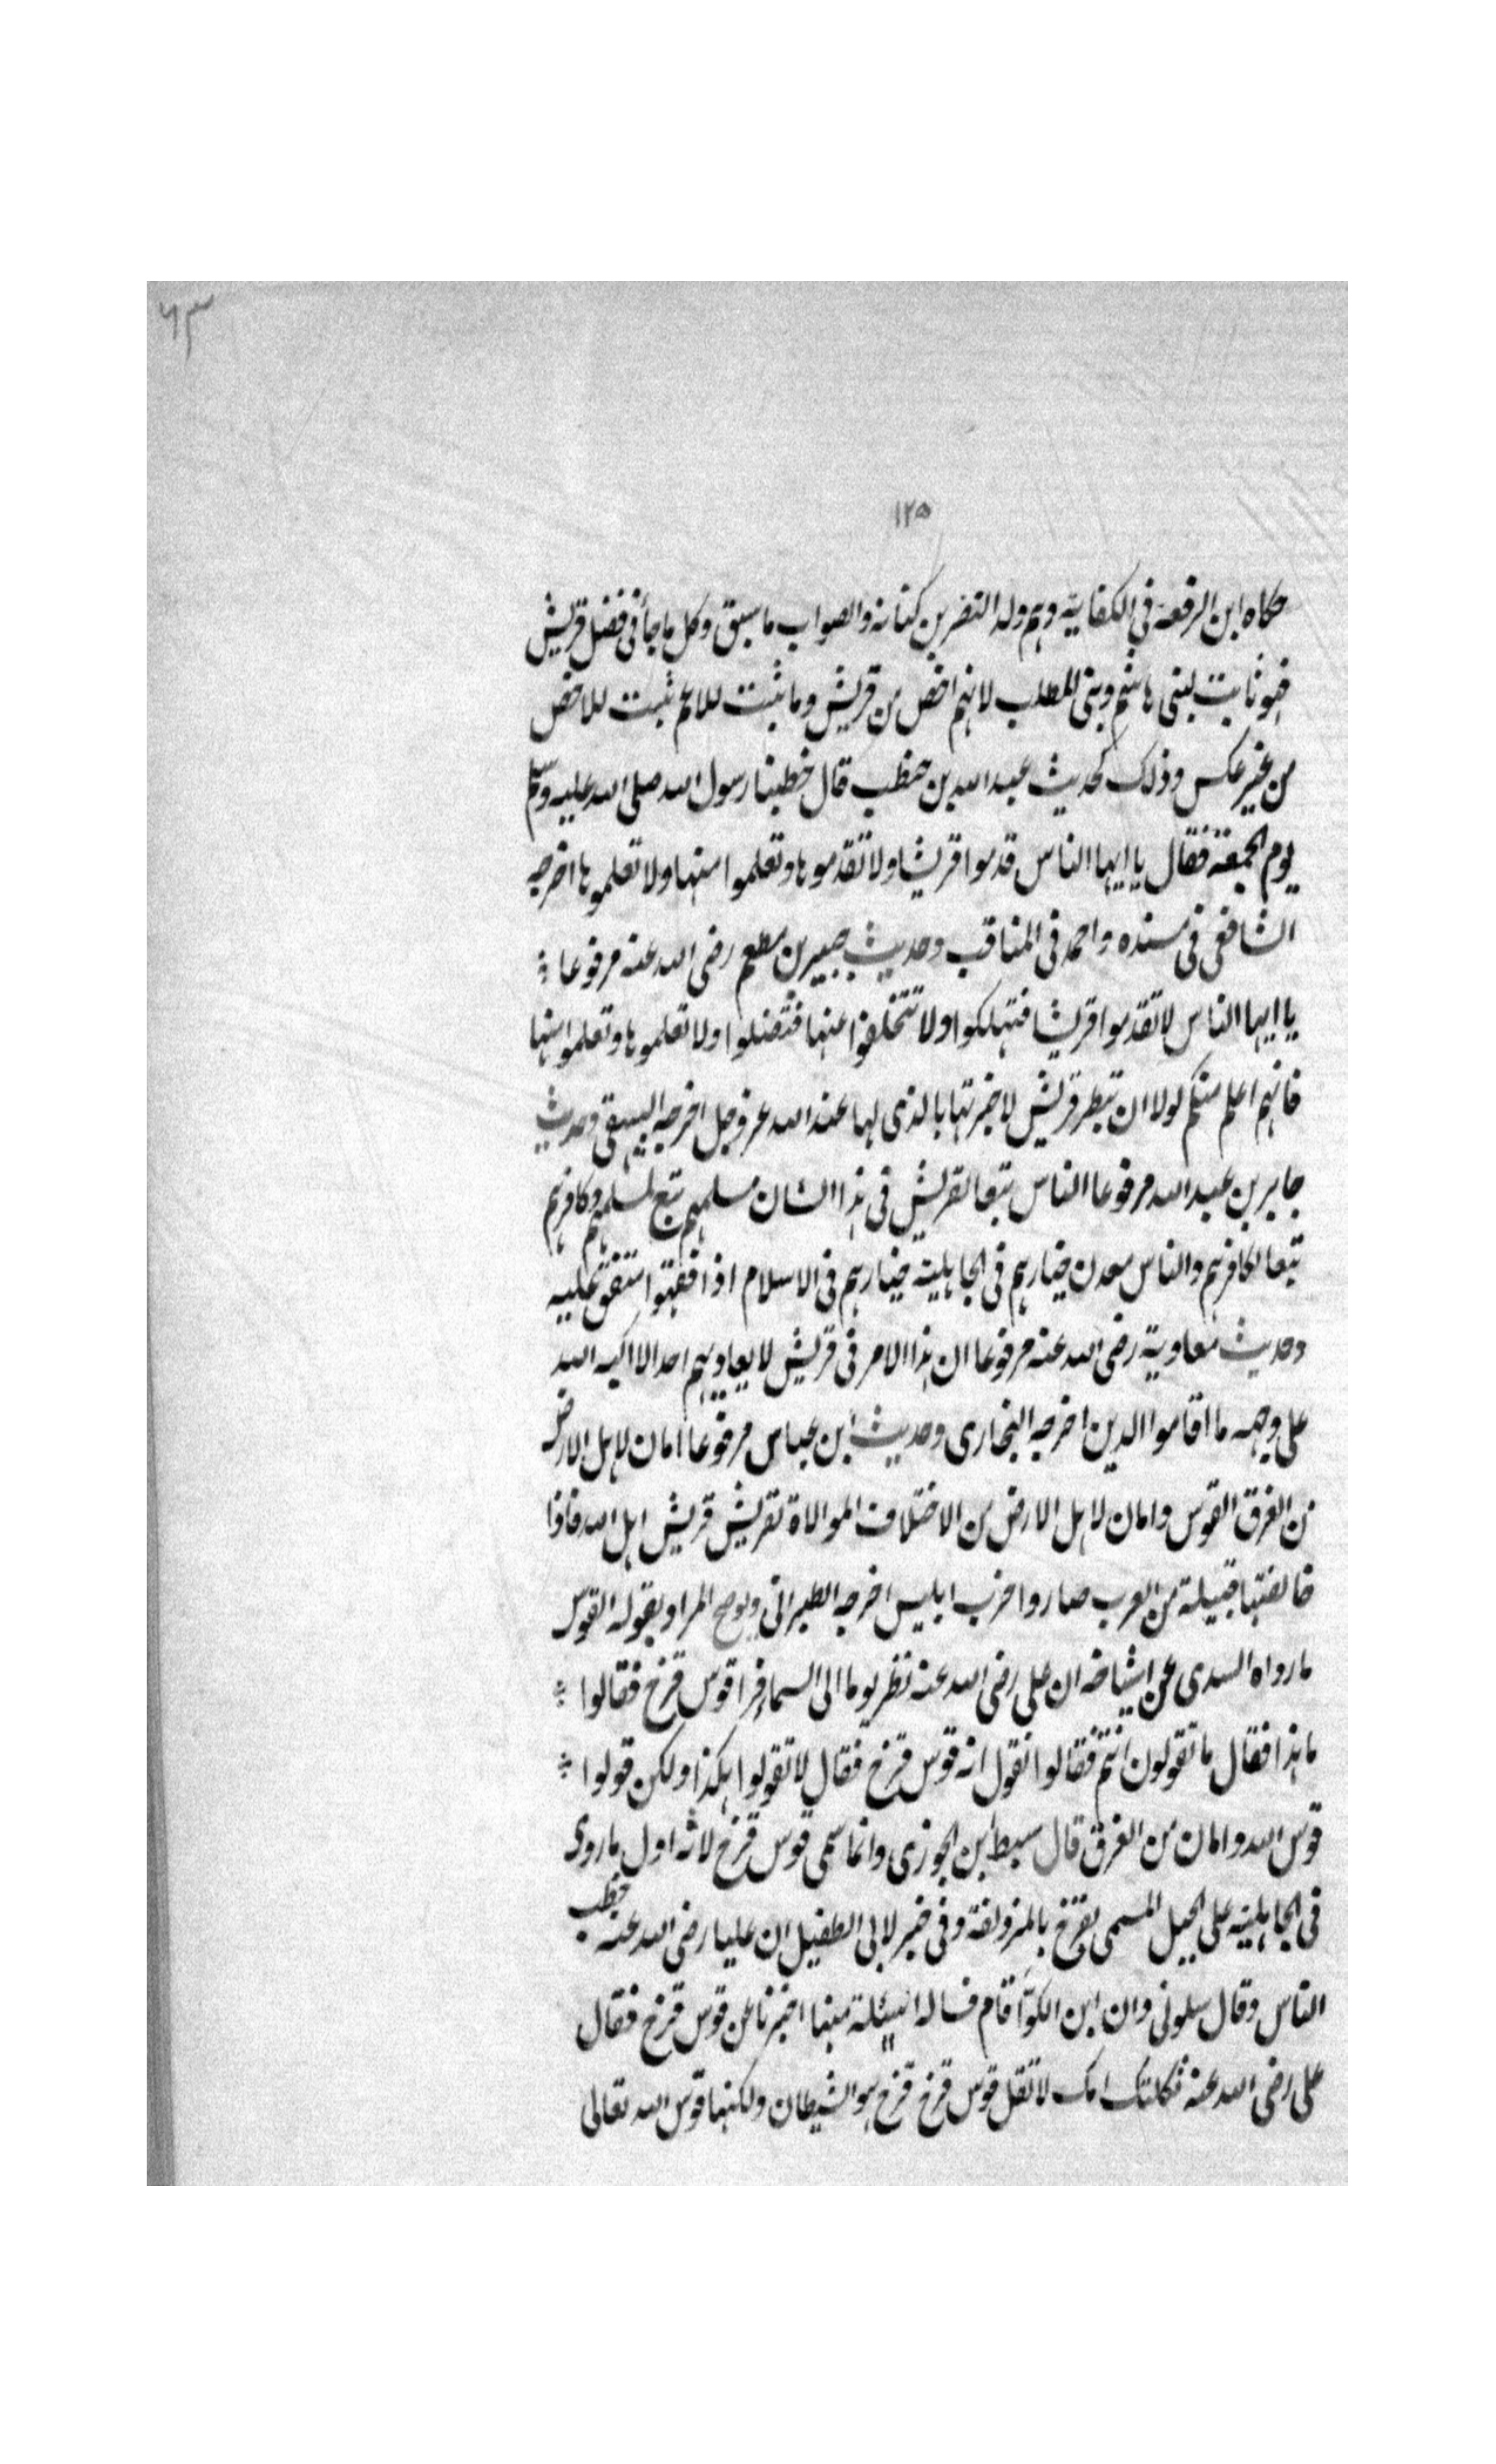 ٦٣
١٢٥
حكاه ابن الرفعة في الكفاية وهم ولد النضر بن كنانة والصواب ما سبق وكل ما جأ في فضل قريش
فهو ثابت لبني هاشم وبني المطلب لانهم اخص من قريش وما ثبت للاعم ثبت للاخص
من غير عكس وذلك كحديث عبد الله بن حنطب قال خطبنا رسول الله صلى الله عليه وسلم
يوم الجمعة فقال يا ايها الناس قدموا قريشا ولا تقدموها وتعلموا منها ولا تعلموها اخرجه
الشافعي في مسنده واحمد في المناقب وحديث جبير بن مطعم رضي الله عنه مرفوعا
يا ايها الناس لا تقدموا قريشا فتهلكوا ولا تتخلفوا عنها فتضلوا ولا تعلموها وتعلموا منها
فانهم اعلم منكم لولا ان تبطر قريش لاخبرتها بالذي لها عند الله عز وجل اخرجه البيهقي وحديث
جابر بن عبد الله مرفوعا الناس تبعا لقريش في هذا الشان مسلمهم تبع لمسلمهم وكافرهم
تبعا لكافرهم والناس معدن خيارهم في الجاهلية خيارهم في الاسلام اذا فقهوا متفق عليه
وحديث معاوية رضي الله عنه مرفوعا ان هذا الامر في قريش لا يعاديهم احد الا اكبه الله
على وجهه ما اقاموا الدين اخرجه البخاري وحديث ابن عباس مرفوعا امان لاهل الارض
من الغرق القوس وامان لاهل الارض من الاختلاف الموالاة لقريش قريش اهل الله فاذا
خالفتها قبيلة من العرب صاروا حزب ابليس اخرجه الطبراني ويوضح المراد بقوله القوس
ما رواه السدي عن اشياخه ان علي رضي الله عنه نظر يوما الى السماء فرا قوس قزح فقالوا
ما هذا فقال ما تقولون انتم فقالوا نقول انه قوس قزح فقال لا تقولوا هكذا ولكن قولوا
قوس الله وامان من الغرق قال سبط ابن الجوزي وانما سمي قوس قزح لانه اول ما روي
في الجاهلية على الجبل المسمى بقزح بالمزدلفة وفي خبر لابي الطفيل ان عليا رضي الله عنه خطب
الناس وقال سلوني وان ابن الكوّا قام فساله اسئلة منها اخبرنا عن قوس قزح فقال
علي رضي الله عنه ثكلتك امك لا تقل قوس قزح قزح هو الشيطان ولكنها قوس الله تعالى